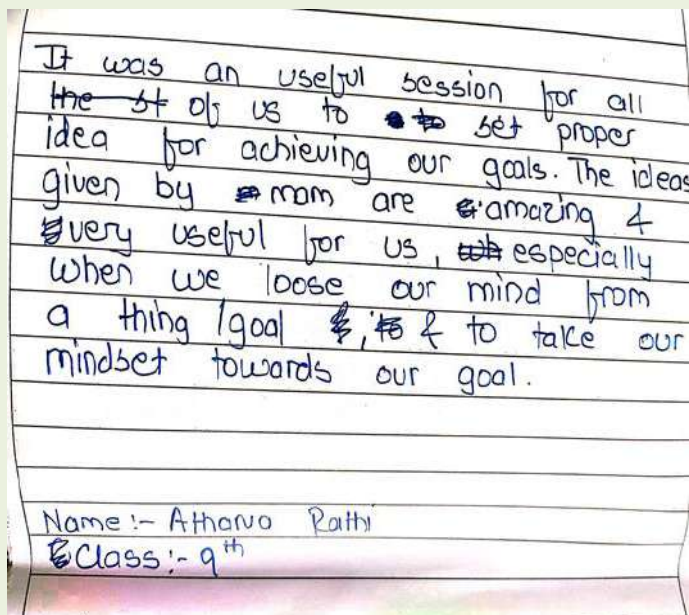 It was an useful session for all
of us to set proper
idea for achieving our goals. The ideas
given by mam are amazing &
very useful for us, especially
when we loose our mind from
a thing /goal & to take our
mindset towards our goal.
Name :- Atharva Rathi
Class :- 9th